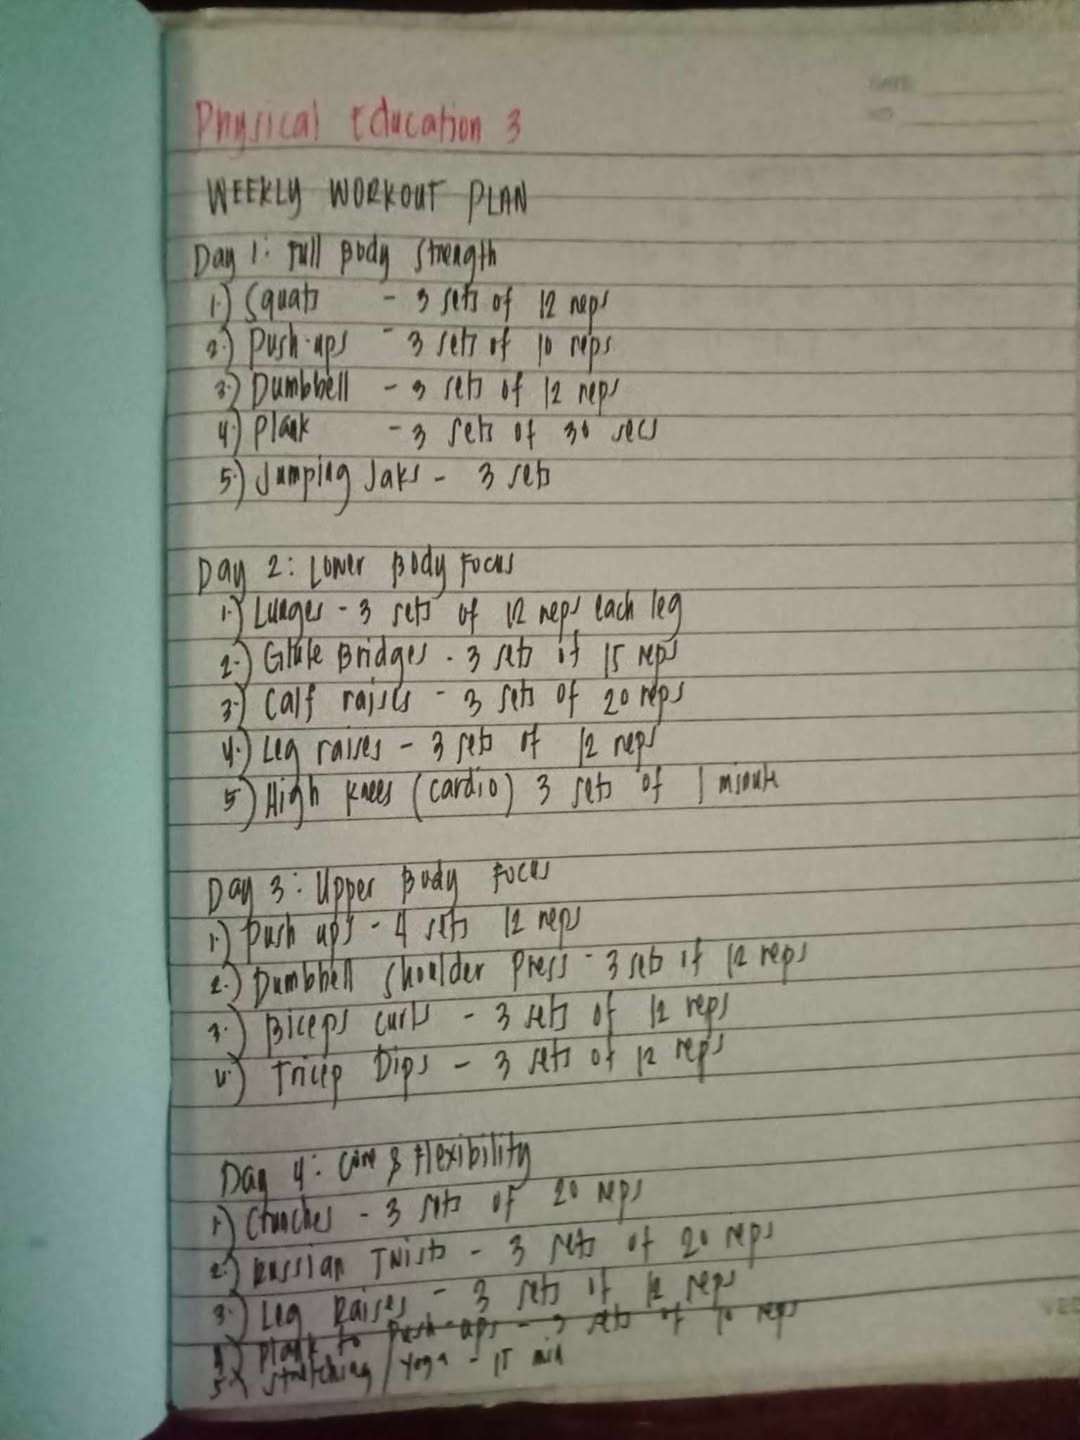 DATE
NO.
Physical Education 3
WEEKLY WORKOUT PLAN
Day 1: Full Body Strength
1.) Squats - 3 sets of 12 reps
2.) Push-ups - 3 sets of 10 reps
3.) Dumbbell - 3 sets of 12 reps
4.) Plank - 3 sets of 30 secs
5.) Jumping Jaks - 3 sets
Day 2: Lower Body Focus
1.) Lunges - 3 sets of 12 reps each leg
2.) Glute Bridges - 3 sets of 15 reps
3.) Calf raises - 3 sets of 20 reps
4.) Leg raises - 3 sets of 12 reps
5) High knees (cardio) 3 sets of 1 minute
Day 3: Upper Body Focus
1.) Push ups - 4 sets 12 reps
2.) Dumbbell Shoulder Press - 3 sets of 12 reps
3.) Biceps curls - 3 sets of 12 reps
4.) Tricep Dips - 3 sets of 12 reps
Day 4: Core & Flexibility
1.) Crunches - 3 sets of 20 reps
2.) Russian Twists - 3 sets of 20 reps
3.) Leg Raises - 3 sets of 12 reps
4.) Plank to Push-ups - 3 sets of 10 reps
5.) Stretching / Yoga - 15 min